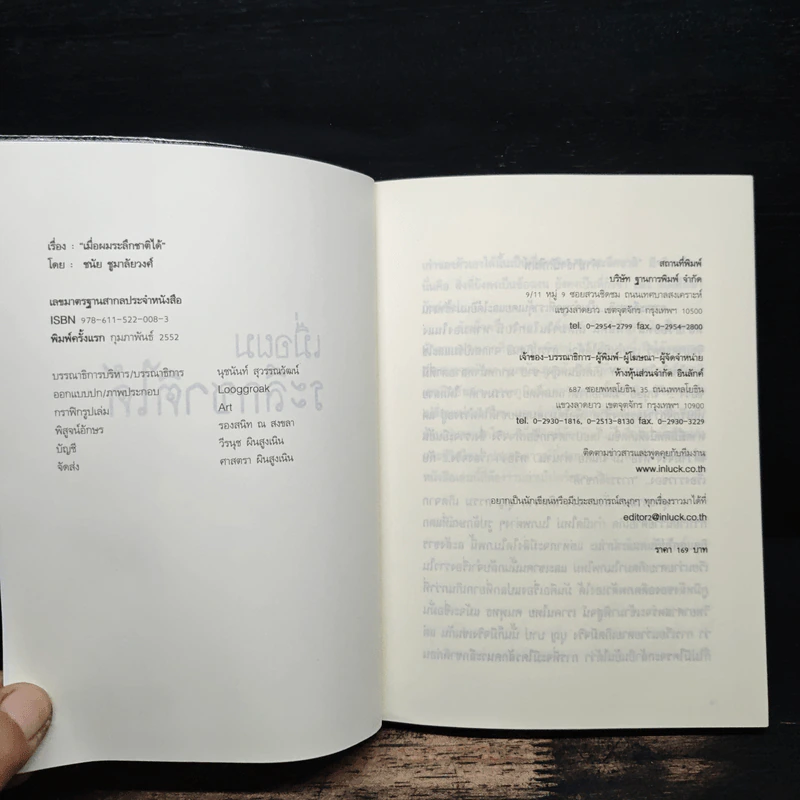 เรื่อง : "เมื่อผมระลึกชาติได้"
โดย : ชนัย ชูมาลัยวงศ์
เลขมาตรฐานสากลประจำหนังสือ
ISBN 978-611-522-008-3
พิมพ์ครั้งแรก กุมภาพันธ์ 2552
บรรณาธิการบริหาร/บรรณาธิการ นุชนันท์ สุวรรณวัฒน์
ออกแบบปก/ภาพประกอบ Looggroak
กราฟิกรูปเล่ม Art
พิสูจน์อักษร รองสนิท ณ สงขลา
บัญชี วีรนุช ผินสูงเนิน
จัดส่ง ศาสตรา ผินสูงเนิน
สถานที่พิมพ์
บริษัท ฐานการพิมพ์ จำกัด
9/11 หมู่ 9 ซอยสวนชิดชม ถนนเทศบาลสงเคราะห์
แขวงลาดยาว เขตจตุจักร กรุงเทพฯ 10500
tel. 0-2954-2799 fax. 0-2954-2800
เจ้าของ-บรรณาธิการ-ผู้พิมพ์-ผู้โฆษณา-ผู้จัดจำหน่าย
ห้างหุ้นส่วนจำกัด อินลัคก์
687 ซอยพหลโยธิน 35 ถนนพหลโยธิน
แขวงลาดยาว เขตจตุจักร กรุงเทพฯ 10900
tel. 0-2930-1816, 0-2513-8130 fax. 0-2930-3229
ติดตามข่าวสารและพูดคุยกับทีมงาน
www.inluck.co.th
อยากเป็นนักเขียนหรือมีประสบการณ์สนุกๆ ทุกเรื่องราวมาได้ที่
editor2@inluck.co.th
ราคา 169 บาท